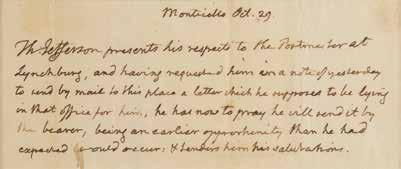 Monticello Oct. 29.
Th Jefferson presents his respects to the Postmaster at
Lynchburg, and having requested him in a note of yesterday
to send by mail to this place a letter which he supposes to be lying
in that office for him, he has now to pray he will send it by
the bearer, being an earlier opportunity than he had
expected would occur: & tenders him his salutations.